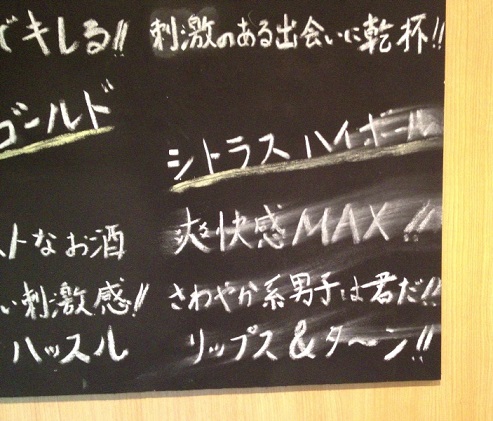 でキレる!!
刺激のある出会いに乾杯!!
ゴールド
シトラスハイボール
ストなお酒
爽快感MAX!!
い刺激感!!
さわやか系男子は君だ!!
ハッスル
リップス&ターン!!